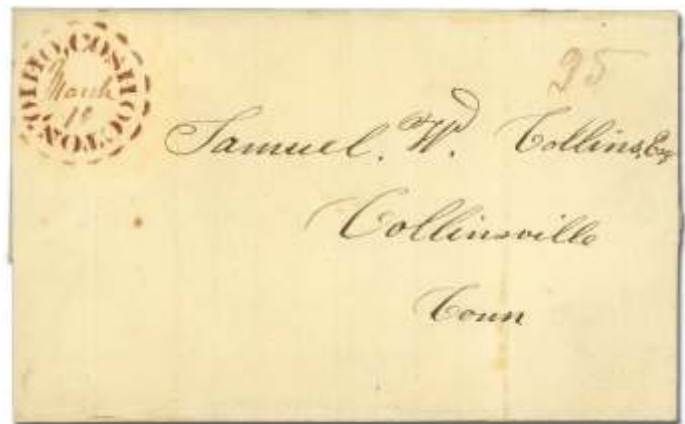 COSHOCTON, OHIO,
March
25
Samuel. W. Collins, Esq
Collinsville
Conn